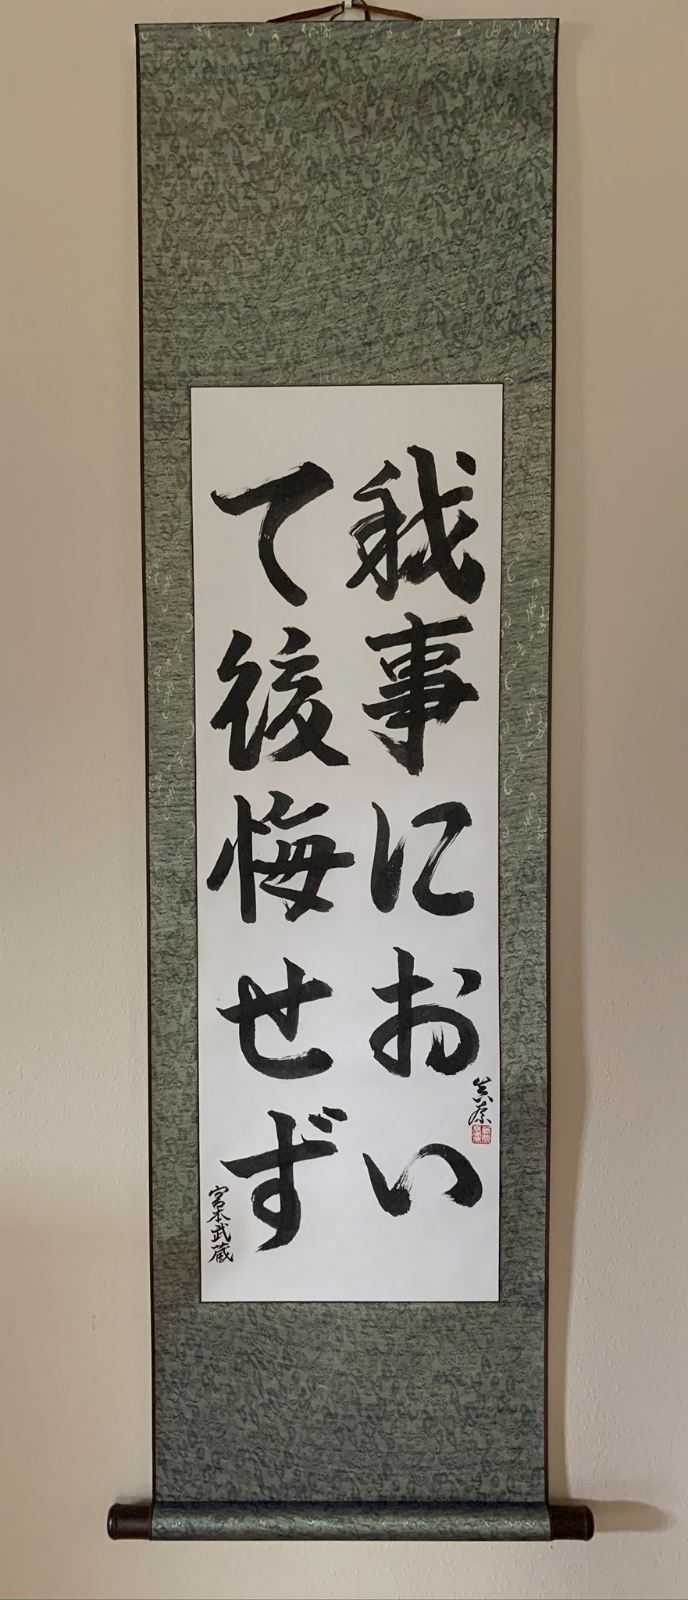 我事におい
て後悔せず
宮本武蔵